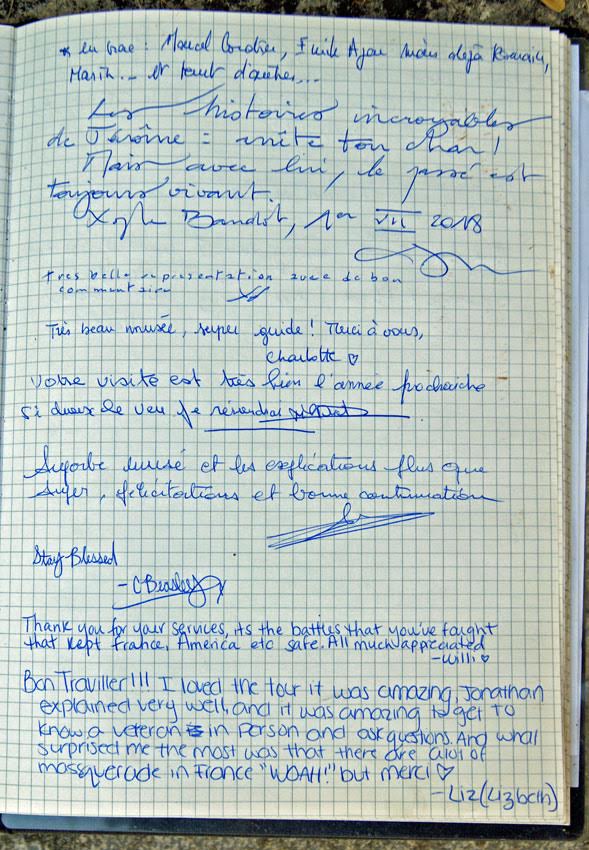 * en vrac : Marcel Cordier, Emile Ajar mais déjà Romain,
Marin... et tant d'autres...
Les histoires incroyables
de Jérôme = arrête ton char !
Mais avec lui, le passé est
toujours vivant.
Baudot, 1er VII 2018
très belle représentation avec de bon
commentaire
Très beau musée, super guide ! Merci à vous,
Charlotte ♡
votre visite est très bien l'année
Si je veu je reviendrai
musé et les explications plus que
super, félicitations et bonne continuation
Stay Blessed
- C Beasley
Thank you for your services, its the battles that you've faught
that kept france, America etc safe. All much appriciated
- Willi ♡
Bon Traviller!!! I loved the tour it was amazing, Jonathan
explained very well, and it was amazing to get to
know a veteran in person and ask qustions. And what
surprised me the most was that there are alot of
massquerade in France "WOAH!" but merci ♡
- Liz (Lizbeth)